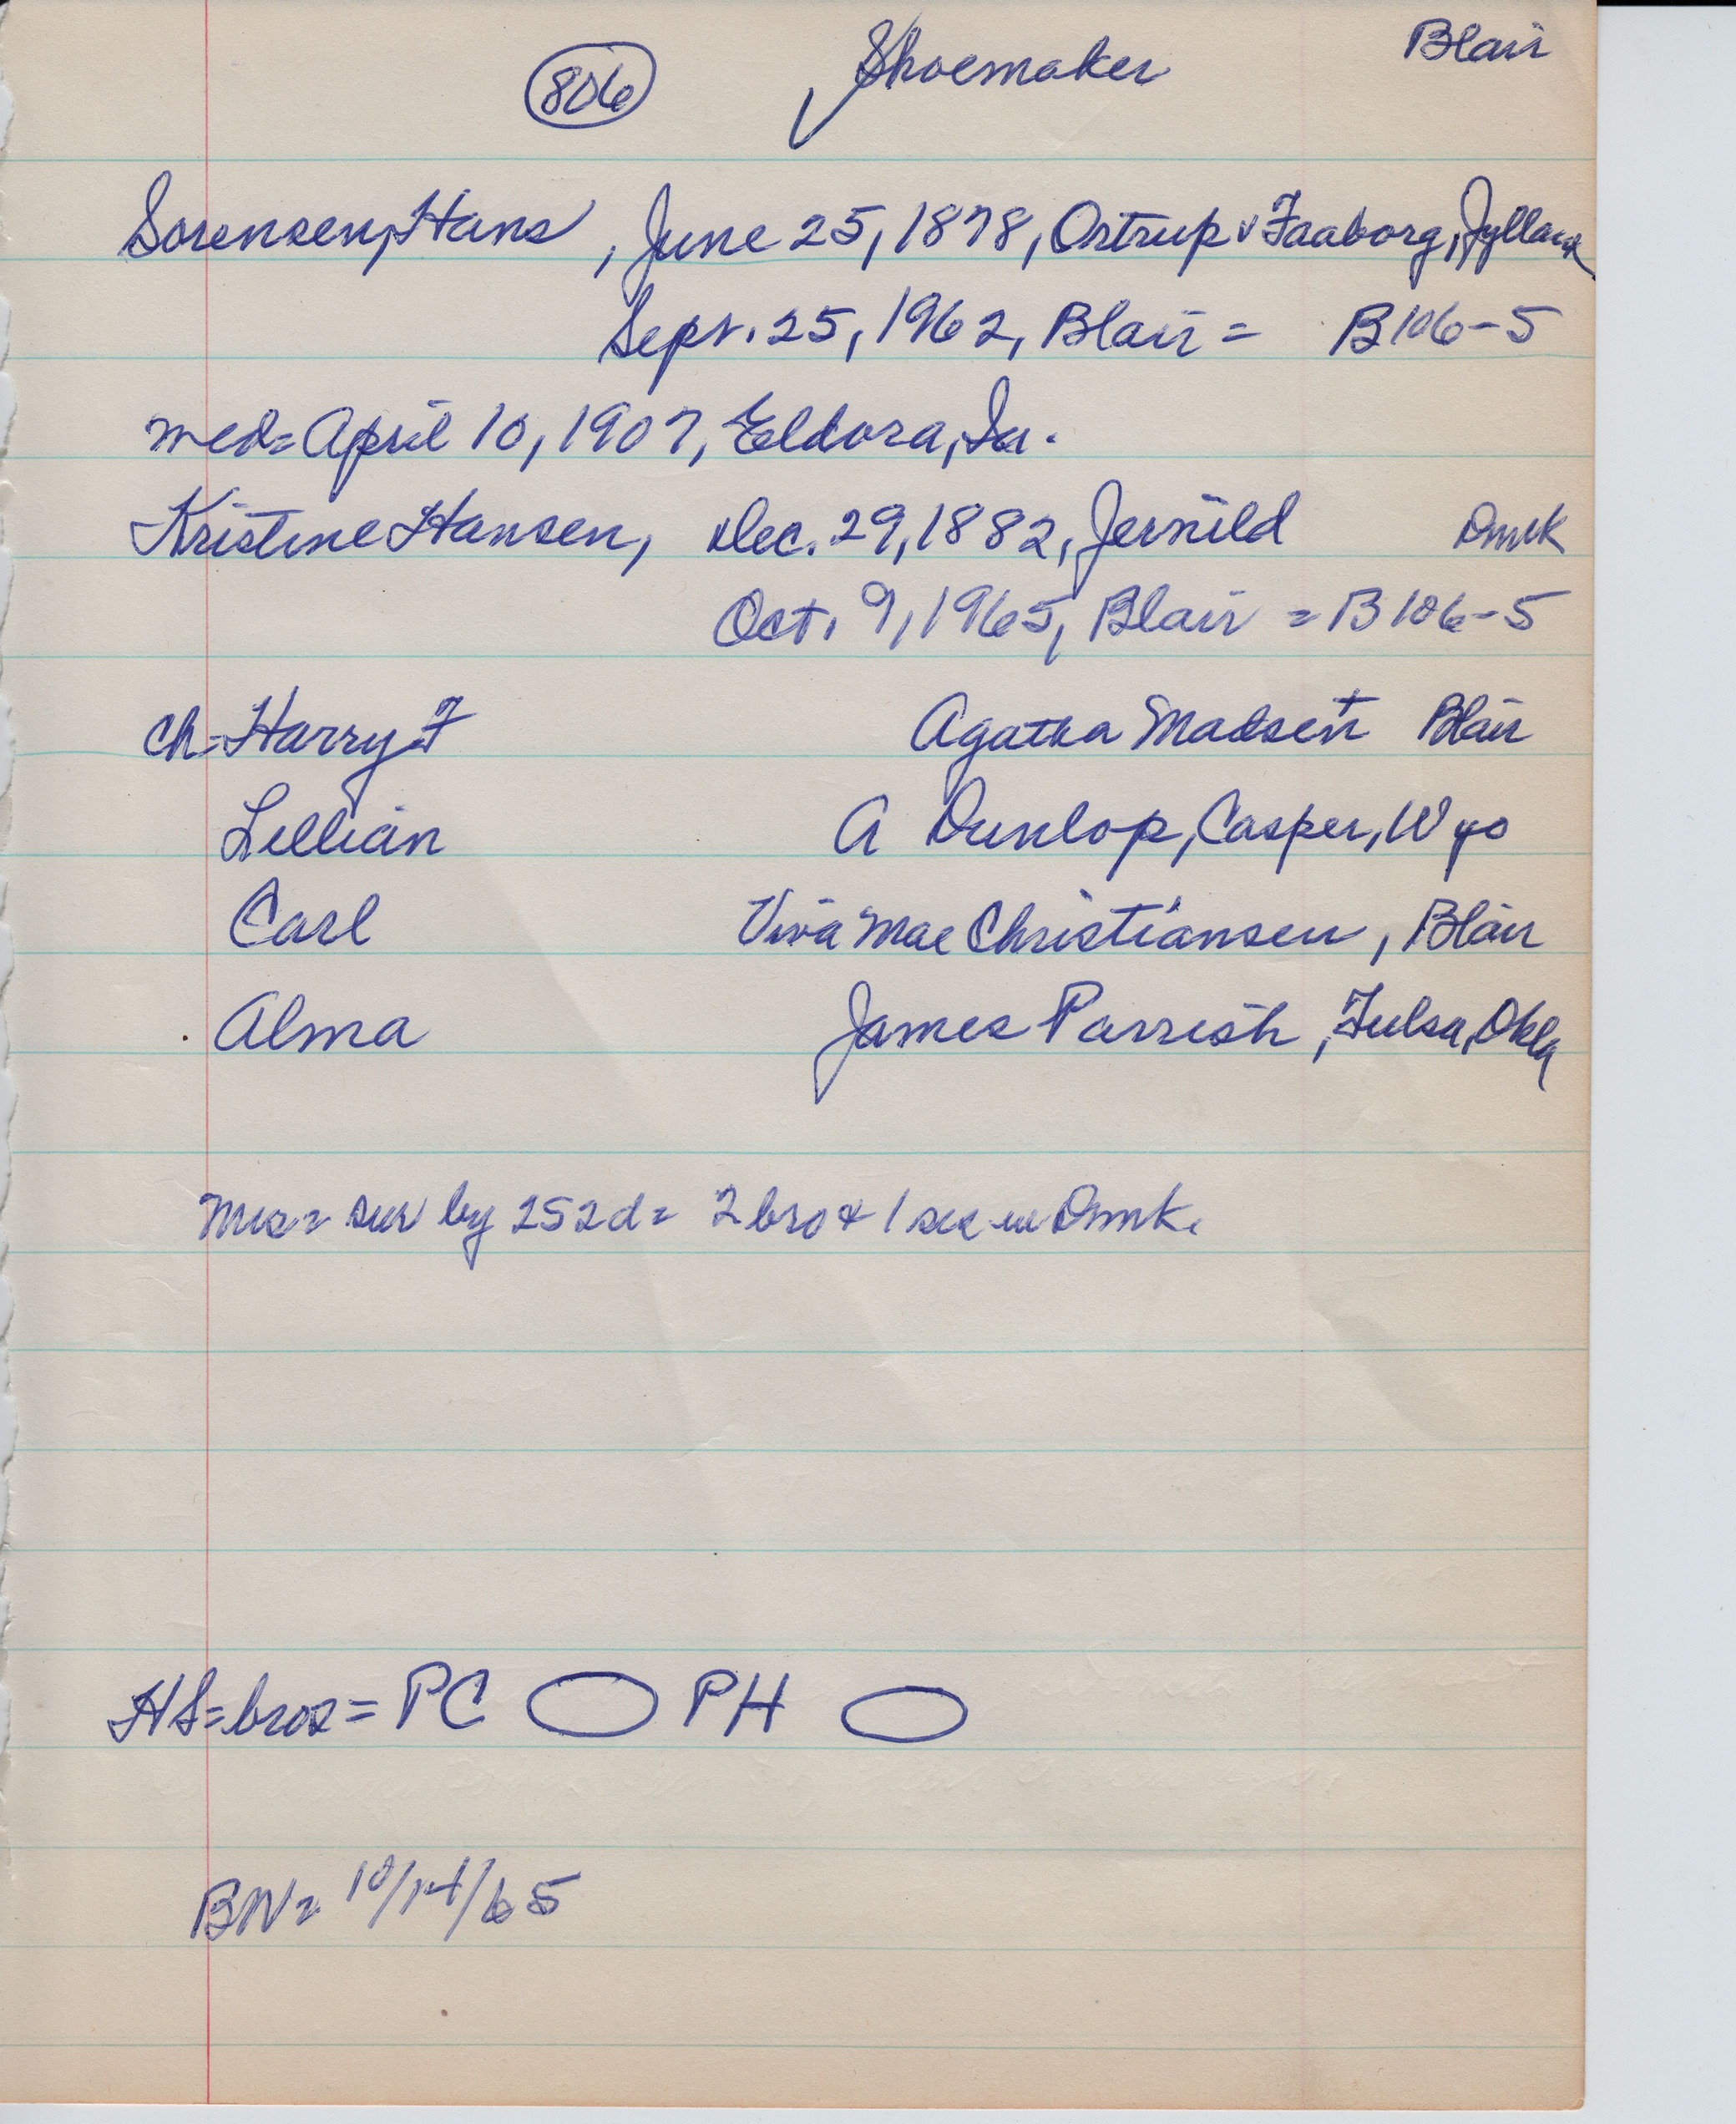 806 Shoemaker Blair
Sorensen, Hans, June 25, 1878, Ostrup v Faaborg, Jylland
Sept. 25, 1962, Blair = B106-5
med= April 10, 1907, Eldora, Ia.
Kristine Hansen, Dec. 29, 1882, Jernild Dmrk
Oct. 9, 1965, Blair = B106-5
ch= Harry F Agatha Madsen Blair
Lillian A Dunlop, Casper, Wyo
Carl Viva Mae Christiansen, Blair
Alma James Parrish, Tulsa, Okla
Mrs= sur by 2S2d= 2 bro & 1 sis in Dmrk.
HS=bros= PC PH
BN= 10/14/65